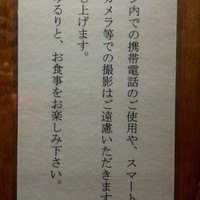 ン内での携帯電話のご使用や、スマート
カメラ等での撮影はご遠慮いただきます
し上げます。
みるりと、お食事をお楽しみ下さい。